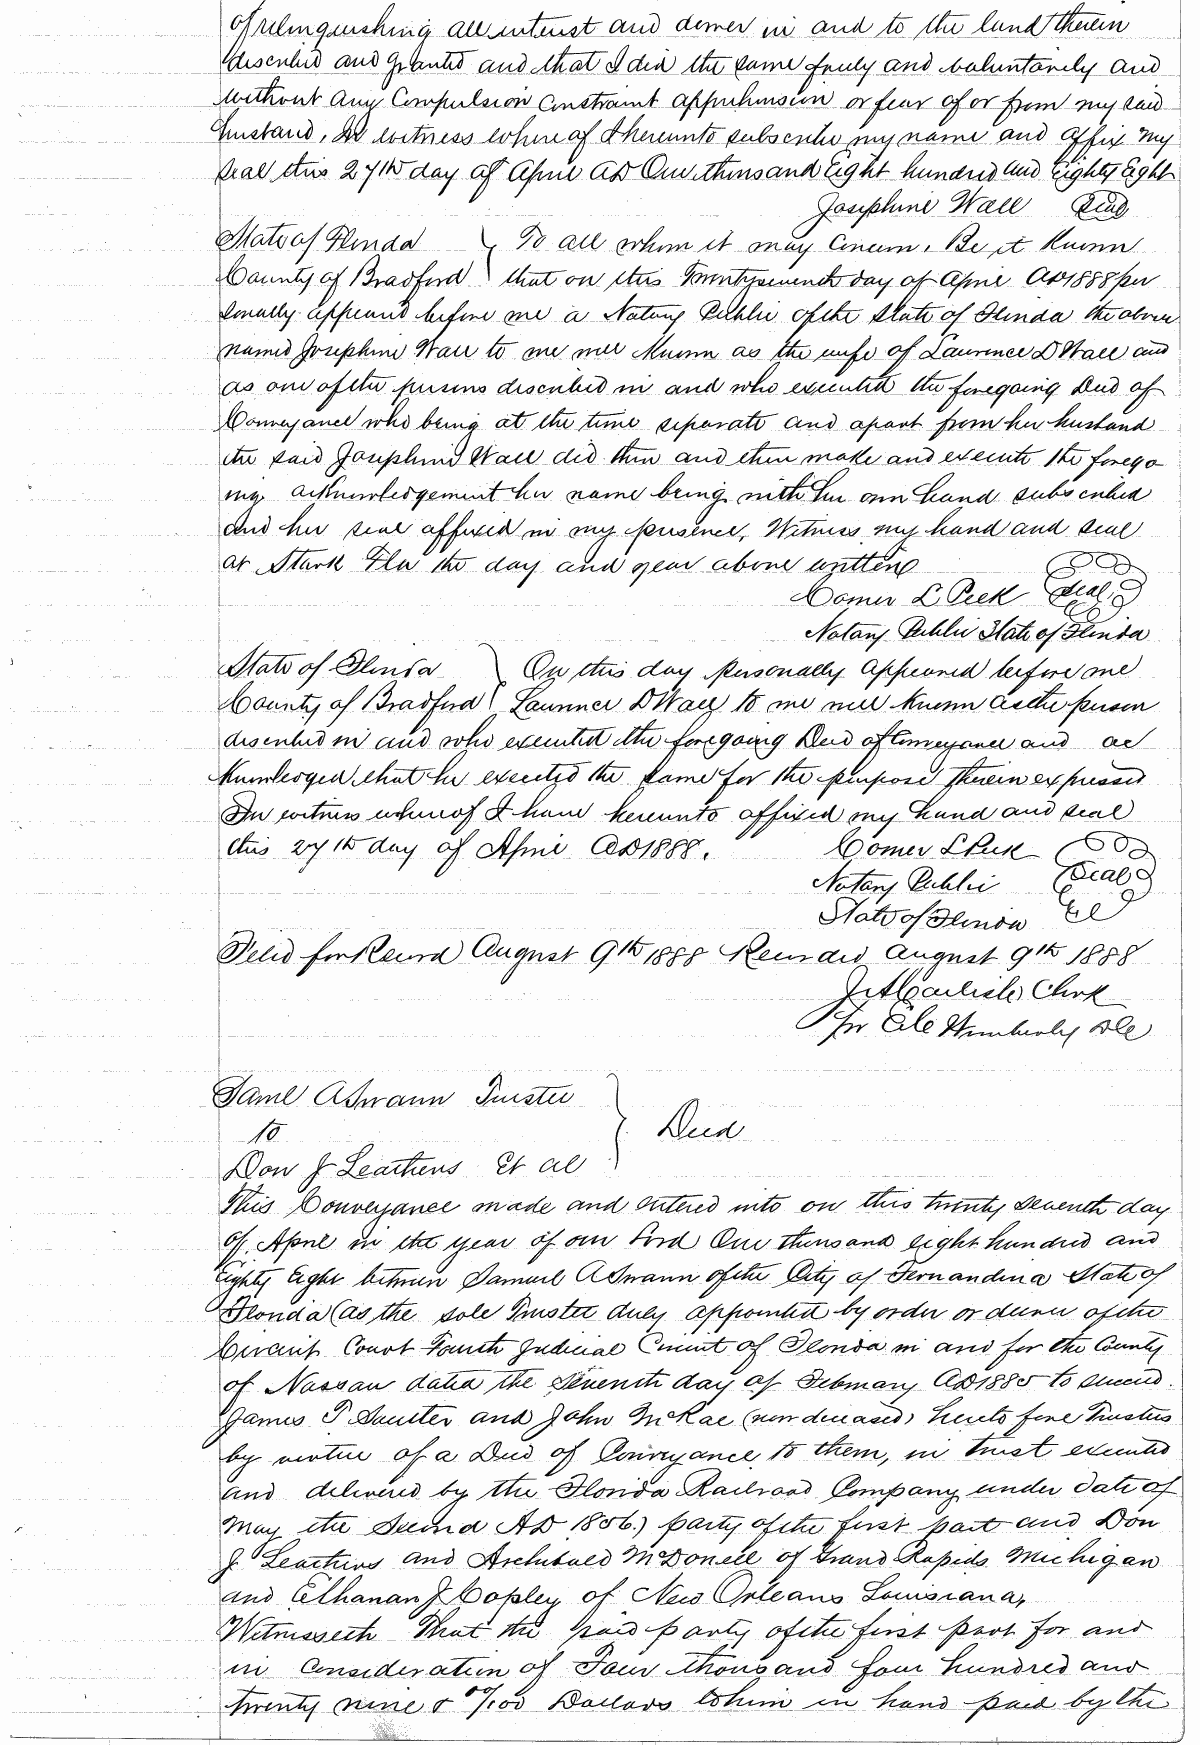 of relinquishing all interest and dower in and to the land therein
described and granted and that I did the same freely and voluntarily and
without any Compulsion Constraint apprehension or fear of or from my said
husband, In witness whereof I hereunto subscribe my name and affix my
seal this 27th day of April AD One thousand Eight hundred and Eighty Eight
Josephine Wall Seal
State of Florida } To all whom it may Concern. Be it Known
County of Bradford } that on this Twenty seventh day of April AD 1888 per
sonally appeared before me a Notary Public of the State of Florida the above
named Josephine Wall to me well Known as the wife of Laurence D Wall and
as one of the persons described in and who executed the foregoing Deed of
Conveyance who being at the time separate and apart from her husband
the said Josephine Wall did then and then make and execute the forego
ing acknowledgement her name being with her own hand subscribed
and her seal affixed in my presence, Witness my hand and seal
at Stark Fla the day and year above written
Comer L Peek Seal
Notary Public State of Florida
State of Florida } On this day personally appeared before me
County of Bradford } Laurence D Wall to me well Known as the person
described in and who executed the foregoing Deed of Conveyance and ac
Knowledged that he executed the same for the purpose therein expressed
In witness whereof I have hereunto affixed my hand and seal
this 27th day of April AD 1888. Comer L Peek
Notary Public Seal
State of Florida
Filed for Record August 9th 1888 Recorded August 9th 1888
Carlisle Clerk
Per Wimberly DC
Saml A Swann Trustee
to } Deed
Don J Leathers Et al
This Conveyance made and entered into on this twenty seventh day
of April in the year of our Lord One thousand eight hundred and
Eighty Eight between Samuel A Swann of the City of Fernandina State of
Florida (as the sole Trustee duly appointed by order or decree of the
Circuit Court Fourth Judicial Circuit of Florida in and for the County
of Nassau dated the Seventh day of February AD 1885 to succeed
James T Soutter and John McRae (now deceased) heretofore Trustees
by virtue of a Deed of Conveyance to them, in trust executed
and delivered by the Florida Railroad Company under date of
May the Second AD 1856.) party of the first part and Don
J Leathers and Archibald McDonell of Grand Rapids Michigan
and Elhanan J Copley of New Orleans Louisiana,
Witnesseth That the said party of the first part for and
in Consideration of Four thousand four hundred and
twenty nine & 00/100 Dollars to him in hand paid by the